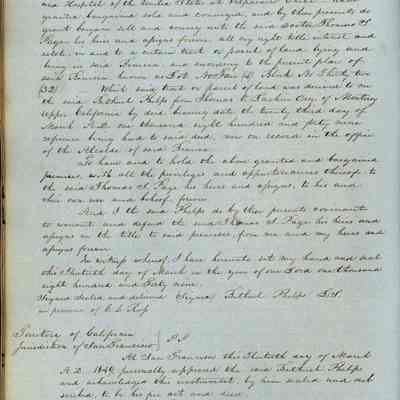 and Hospital of the United States at Valparaiso Chile have
granted bargained sold and conveyed, and by these presents do
grant bargain sell and convey unto the said Doctor Thomas J.
Page his heirs and assigns forever all my right title interest and
estate in and to a certain tract or parcel of land lying and
being in said Benicia and according to the present plan of
said Benicia known as Lot No. Four (4) Block No. Thirty two
(32) Which said tract or parcel of land was deeded to me
the said Bethuel Phelps from Thomas O. Larkin Esq. of Monterey
Upper California by deed bearing date the twenty third day of
March A.D. one thousand eight hundred and forty nine
reference being had to said deed, now on record in the office
of the Alcalde of said Benicia
To have and to hold the above granted and bargained
premises, with all the privileges and appurtenances thereof, to
the said Thomas J. Page his heirs and assigns, to his and
their own use and behoof forever
And I the said Phelps do by these presents covenant
to warrant and defend the said Thomas J. Page his heirs and
assigns in the title to said premises, from me and my heirs and
assigns forever
In witness whereof, I have hereunto set my hand and seal
this Thirtieth day of March in the year of our Lord one thousand
eight hundred and Forty nine.
Signed Sealed and delivered (Signed) Bethuel Phelps L.S.
in presence of C. L. Ross
Territory of California
Jurisdiction of San Francisco } S.S.
At San Francisco this Thirtieth day of March
A.D. 1849 personally appeared the said Bethuel Phelps
and acknowledged this instrument, by him sealed and sub
scribed, to be his free act and deed.